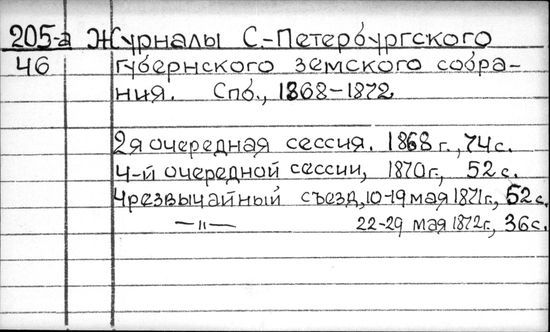 205-а Журналы С.-Петербургского
46 губернского земского собра-
ния. Спб., 1868-1872
2я очередная сессия. 1868 г., 74 с.
4-й очередной сессии, 1870 г., 52 с.
Чрезвычайный съезд, 10-19 мая 1871 г., 52 с.
—"— 22-29 мая 1872 г., 36 с.